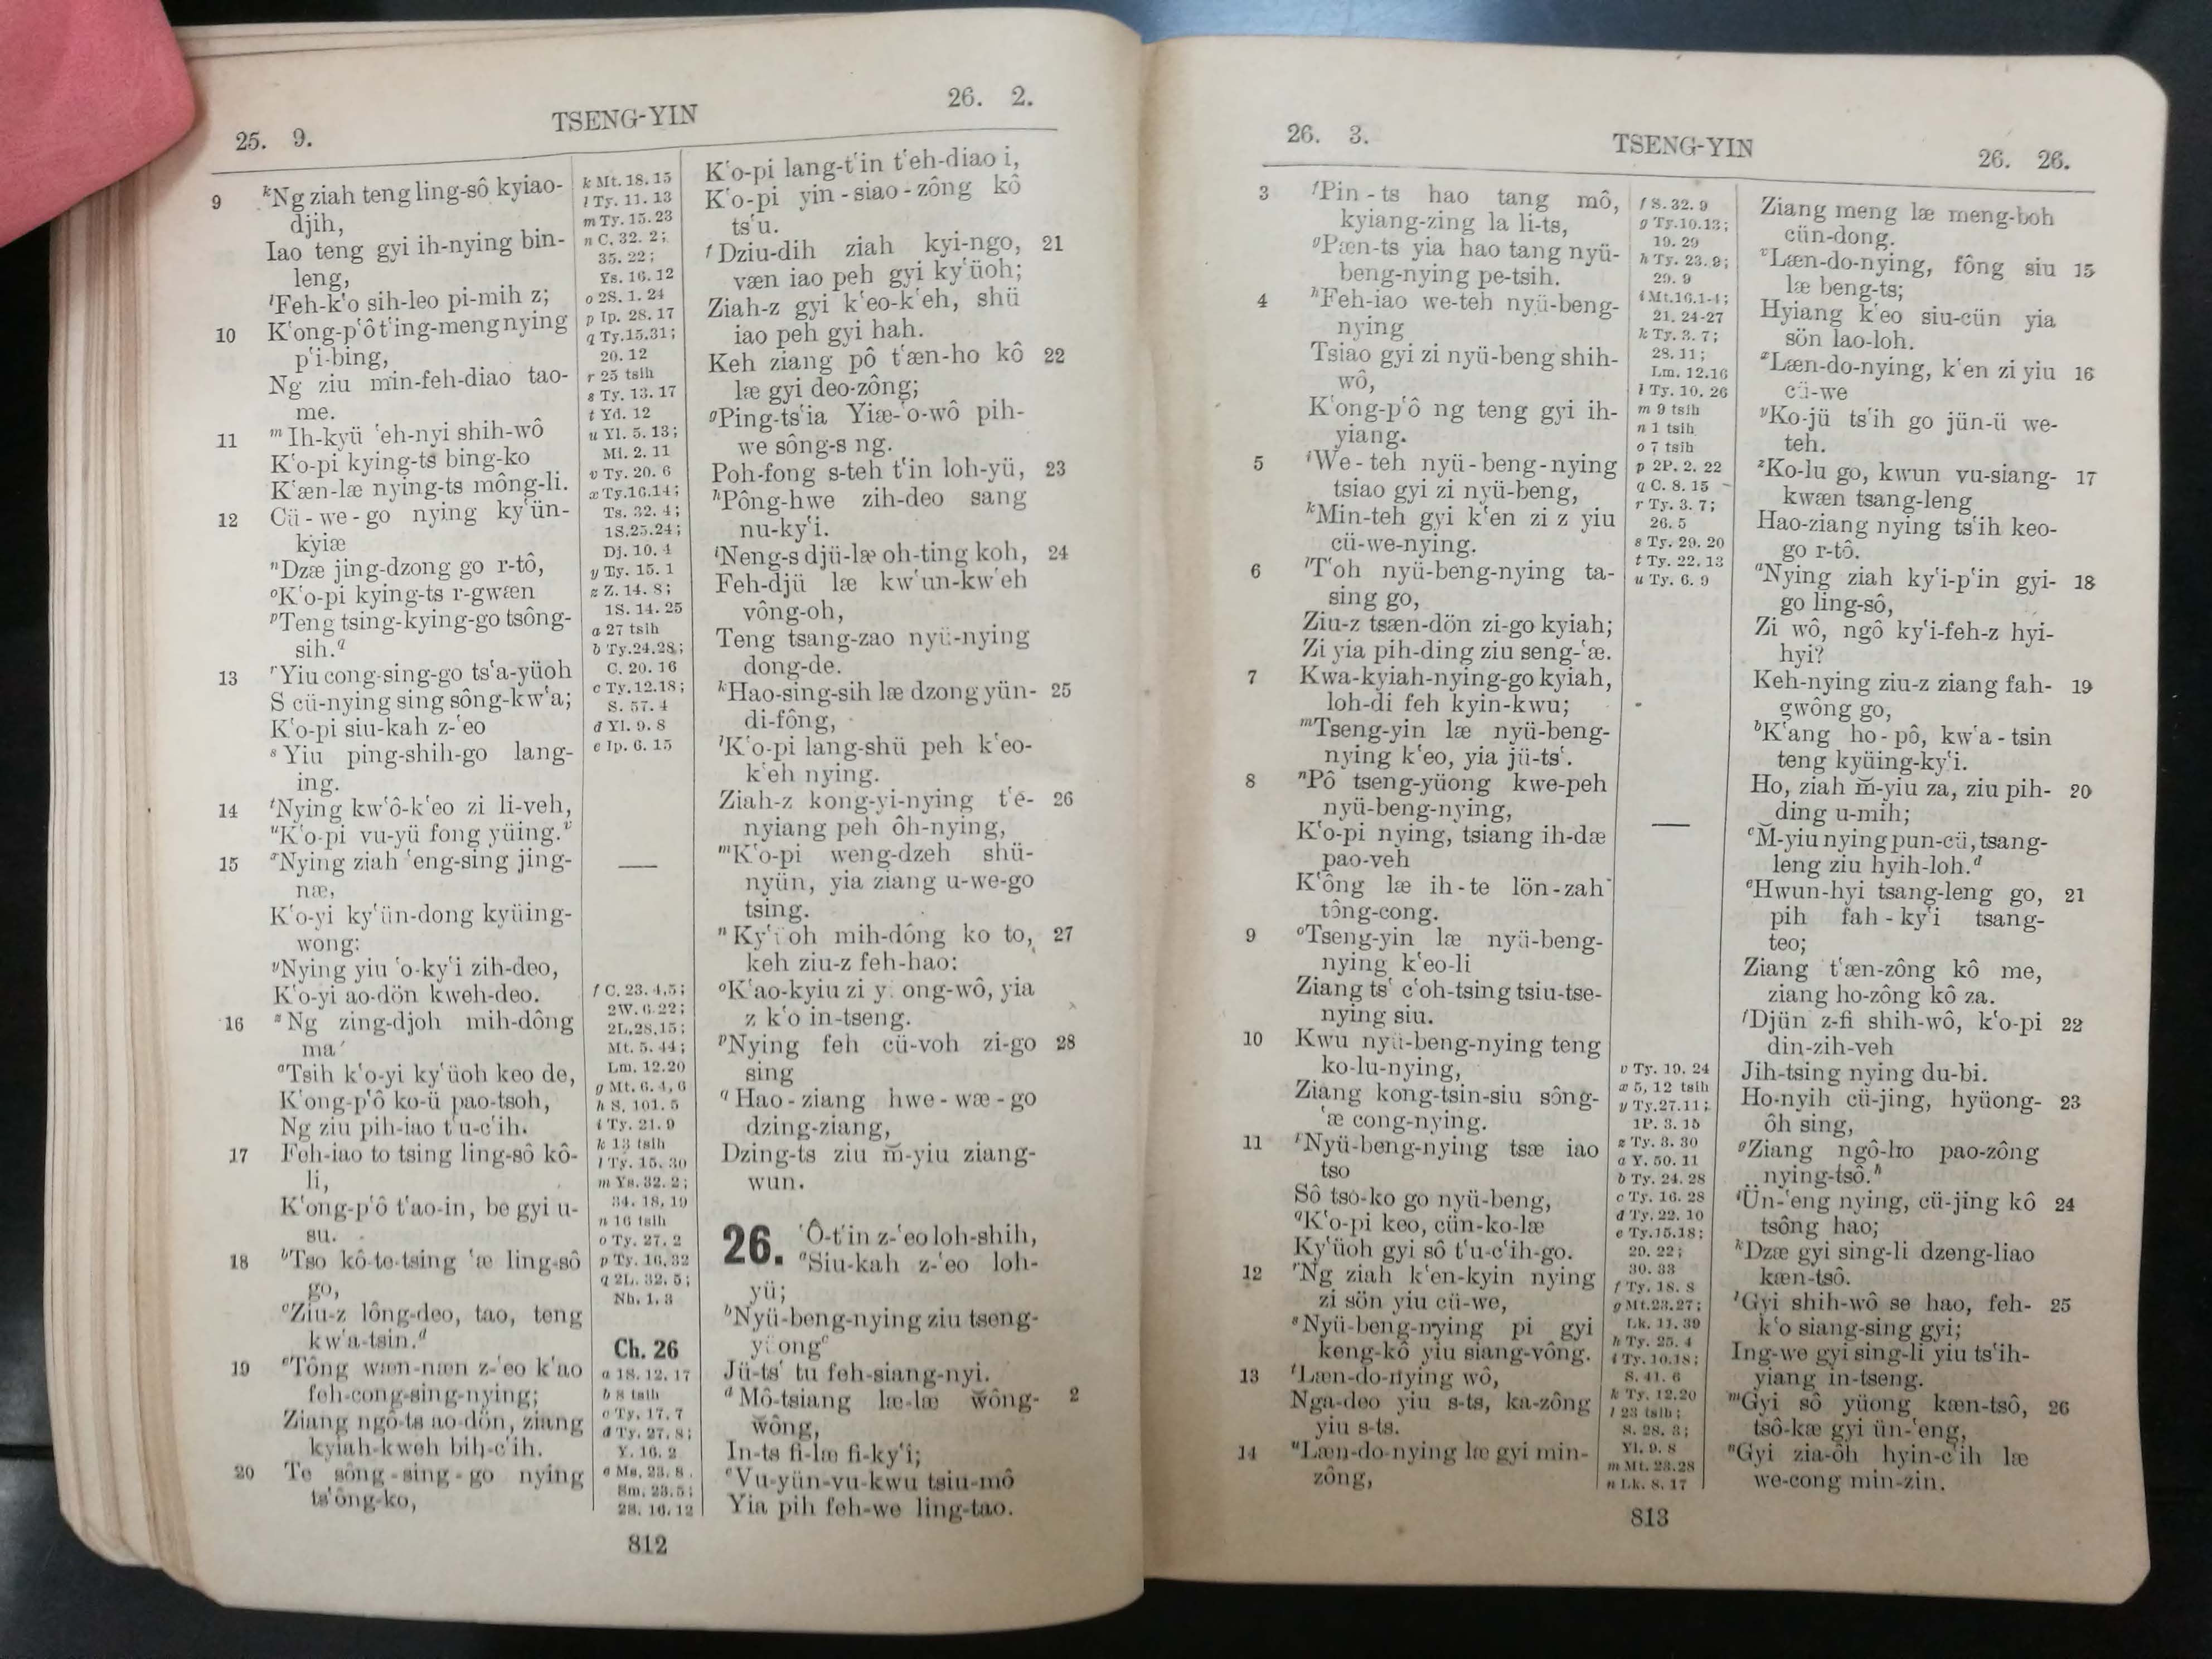 25. 9.
TSENG-YIN
26. 2.
9 kNg ziah teng ling-sô kyiao-
djih,
Iao teng gyi ih-nying bin-
leng,
lFeh-k'o sih-leo pi-mih z;
10 K'ong-p'ô t'ing-meng nying
p'i-bing,
Ng ziu min-feh-diao tao-
me.
11 mIh-kyü 'eh-nyi shih-wô
K'o-pi kying-ts bing-ko
K'æn-læ nying-ts mông-li.
12 Cü-we-go nying ky'ün-
kyiæ
nDzæ jing-dzong go r-tô,
oK'o-pi kying-ts r-gwæn
pTeng tsing-kying-go tsông-
sih.q
13 rYiu cong-sing-go ts'a-yüoh
S cü-nying sing sông-kw'a;
K'o-pi siu-kah z-'eo
sYiu ping-shih-go lang-
ing.
14 tNying kw'ô-k'eo zi li-veh,
uK'o-pi vu-yü fong yüing.v
15 xNying ziah 'eng-sing jing-
næ,
K'o-yi ky'ün-dong kyüing-
wong:
yNying yiu 'o-ky'i zih-deo,
K'o-yi ao-dön kweh-deo.
16 zNg zing-djoh mih-dông
ma
aTsih k'o-yi ky'üoh keo de,
K'ong-p'ô ko-ü pao-tsoh,
Ng ziu pih-iao t'u-c'ih.
17 Feh-iao to tsing ling-sô kô-
li,
K'ong-p'ô t'ao-in, be gyi u-
su.
18 bTso kô-te-tsing 'æ ling-sô
go,
cZiu-z lông-deo, tao, teng
kw'a-tsin.d
19 eTông wæn-næn z-'eo k'ao
feh-cong-sing-nying;
Ziang ngô-ts ao-dön, ziang
kyiah-kweh bih-c'ih.
20 Te sông-sing-go nying
ts'ông-ko,
k Mt. 18. 15
l Ty. 11. 13
m Ty. 15. 23
n C. 32. 2;
35. 22;
Ys. 16. 12
o 2S. 1. 24
p Ip. 28. 17
q Ty. 15.31;
20. 12
r 25 tsih
s Ty. 13. 17
t Yd. 12
u Yl. 5. 13;
Mi. 2. 11
v Ty. 20. 6
x Ty.16.14;
Ts. 32. 4;
1S.25.24;
Dj. 10. 4
y Ty. 15. 1
z Z. 14. 8;
1S. 14. 25
a 27 tsih
b Ty.24.28;
C. 20. 16
c Ty.12.18;
S. 57. 4
d Yl. 9. 8
e Ip. 6. 15
f C. 23. 4,5;
2W. 6.22;
2L.28.15;
Mt. 5. 44;
Lm. 12.20
g Mt. 6. 4, 6
h S. 101. 5
i Ty. 21. 9
k 13 tsih
l Ty. 15. 30
m Ys. 32. 2;
34. 18, 19
n 16 tsih
o Ty. 27. 2
p Ty. 16. 32
q 2L. 32. 5;
Nh. 1. 3
Ch. 26
a 1S. 12. 17
b 8 tsih
c Ty. 17. 7
d Ty. 27. 8;
Y. 16. 2
e Ms. 23. 8.
Sm. 23.5;
2S. 16. 12
K'o-pi lang-t'in t'eh-diao i,
K'o-pi yin-siao-zông kô
ts'u.
fDziu-dih ziah kyi-ngo, 21
væn iao peh gyi ky'üoh;
Ziah-z gyi k'eo-k'eh, shü
iao peh gyi hah.
Keh ziang pô t'æn-ho kô 22
læ gyi deo-zông;
gPing-ts'ia Yiæ-'o-wô pih-
we sông-s ng.
Poh-fong s-teh t'in loh-yü, 23
hPông-hwe zih-deo sang
nu-ky'i.
iNeng-s djü-læ oh-ting koh, 24
Feh-djü læ kw'un-kw'eh
vông-oh,
Teng tsang-zao nyü-nying
dong-de.
kHao-sing-sih læ dzong yün- 25
di-fông,
lK'o-pi lang-shü peh k'eo-
k'eh nying.
Ziah-z kong-yi-nying t'e- 26
nyiang peh ôh-nying,
mK'o-pi weng-dzeh shü-
nyün, yia ziang u-we-go
tsing.
nKy'üoh mih-dông ko to, 27
keh ziu-z feh-hao:
oK'ao-kyiu zi yüong-wô, yia
z k'o in-tseng.
pNying feh cü-voh zi-go 28
sing
qHao-ziang hwe-wæ-go
dzing-ziang,
Dzing-ts ziu m̆-yiu ziang-
wun.
26. 'Ô-t'in z-'eo loh-shih,
aSiu-kah z-'eo loh-
yü;
bNyü-beng-nying ziu tseng-
yüongc
Jü-ts' tu feh-siang-nyi.
dMô-tsiang læ-læ w̆ông- 2
w̆ông,
In-ts fi-læ fi-ky'i;
eVu-yün-vu-kwu tsiu-mô
Yia pih feh-we ling-tao.
812
26. 3.
TSENG-YIN
26. 26.
3 fPin-ts hao tang mô,
kyiang-zing la li-ts,
gPæn-ts yia hao tang nyü-
beng-nying pe-tsih.
4 hFeh-iao we-teh nyü-beng-
nying
Tsiao gyi zi nyü-beng shih-
wô,
K'ong-p'ô ng teng gyi ih-
yiang.
5 iWe-teh nyü-beng-nying
tsiao gyi zi nyü-beng,
kMin-teh gyi k'en zi z yiu
cü-we-nying.
6 lT'oh nyü-beng-nying ta-
sing go,
Ziu-z tsæn-dön zi-go kyiah;
Zi yia pih-ding ziu seng-'æ.
7 Kwa-kyiah-nying-go kyiah,
loh-di feh kyin-kwu;
mTseng-yin læ nyü-beng-
nying k'eo, yia jü-ts'.
8 nPô tseng-yüong kwe-peh
nyü-beng-nying,
K'o-pi nying, tsiang ih-dæ
pao-veh
K'ông læ ih-te lön-zah
tông-cong.
9 oTseng-yin læ nyü-beng-
nying k'eo-li
Ziang ts' c'oh-tsing tsiu-tse-
nying siu.
10 Kwu nyü-beng-nying teng
ko-lu-nying,
Ziang kong-tsin-siu sông-
'æ cong-nying.
11 rNyü-beng-nying tsæ iao
tso
Sô tso-ko go nyü-beng,
qK'o-pi keo, cün-ko-læ
Ky'üoh gyi sô t'u-c'ih-go.
12 rNg ziah k'en-kyin nying
zi sön yiu cü-we,
sNyü-beng-nying pi gyi
keng-kô yiu siang-vông.
13 tLæn-do-nying wô,
Nga-deo yiu s-ts, ka-zông
yiu s-ts.
14 uLæn-do-nying læ gyi min-
zông,
f S. 32. 9
g Ty.10.13;
19. 29
h Ty. 23. 9;
29. 9
i Mt.16.1-4;
21. 24-27
k Ty. 3. 7;
28. 11;
Lm. 12.16
l Ty. 10. 26
m 9 tsih
n 1 tsih
o 7 tsih
p 2P. 2. 22
q C. 8. 15
r Ty. 3. 7;
26. 5
s Ty. 29. 20
t Ty. 22. 13
u Ty. 6. 9
v Ty. 19. 24
x 5, 12 tsih
y Ty.27.11;
1P. 3. 15
z Ty. 3. 30
a Y. 50. 11
b Ty. 24. 28
c Ty. 16. 28
d Ty. 22. 10
e Ty.15.18;
29. 22;
30. 33
f Ty. 18. 8
g Mt.23.27;
Lk. 11. 39
h Ty. 25. 4
i Ty. 10.18;
S. 41. 6
k Ty. 12.20
l 23 tsih;
S. 28. 3;
Yl. 9. 8
m Mt. 23.28
n Lk. 8. 17
Ziang meng læ meng-boh
cün-dong.
vLæn-do-nying, fông siu 15
læ beng-ts;
Hyiang k'eo siu-cün yia
sön lao-loh.
xLæn-do-nying, k'en zi yiu 16
cü-we
yKo-jü ts'ih go jün-ü we-
teh.
zKo-lu go, kwun vu-siang- 17
kwæn tsang-leng
Hao-ziang nying ts'ih keo-
go r-tô.
aNying ziah ky'i-p'in gyi- 18
go ling-sô,
Zi wô, ngô ky'i-feh-z hyi-
hyi?
Keh-nying ziu-z ziang fah- 19
gwông go,
bK'ang ho-pô, kw'a-tsin
teng kyüing-ky'i.
Ho, ziah m̆-yiu za, ziu pih- 20
ding u-mih;
cM̆-yiu nying pun-cü, tsang-
leng ziu hyih-loh.d
eHwun-hyi tsang-leng go, 21
pih fah-ky'i tsang-
teo;
Ziang t'æn-zông kô me,
ziang ho-zông kô za.
fDjün z-fi shih-wô, k'o-pi 22
din-zih-veh
Jih-tsing nying du-bi.
Ho-nyih cü-jing, hyüong- 23
ôh sing,
gZiang ngô-ho pao-zông
nying-tsô.h
iÜn-'eng nying, cü-jing kô 24
tsông hao;
kDzæ gyi sing-li dzeng-liao
kæn-tsô.
lGyi shih-wô se hao, feh- 25
k'o siang-sing gyi;
Ing-we gyi sing-li yiu ts'ih-
yiang in-tseng.
mGyi sô yüong kæn-tsô, 26
tsô-kæ gyi ün-'eng,
nGyi zia-ôh hyin-c'ih læ
we-cong min-zin.
813